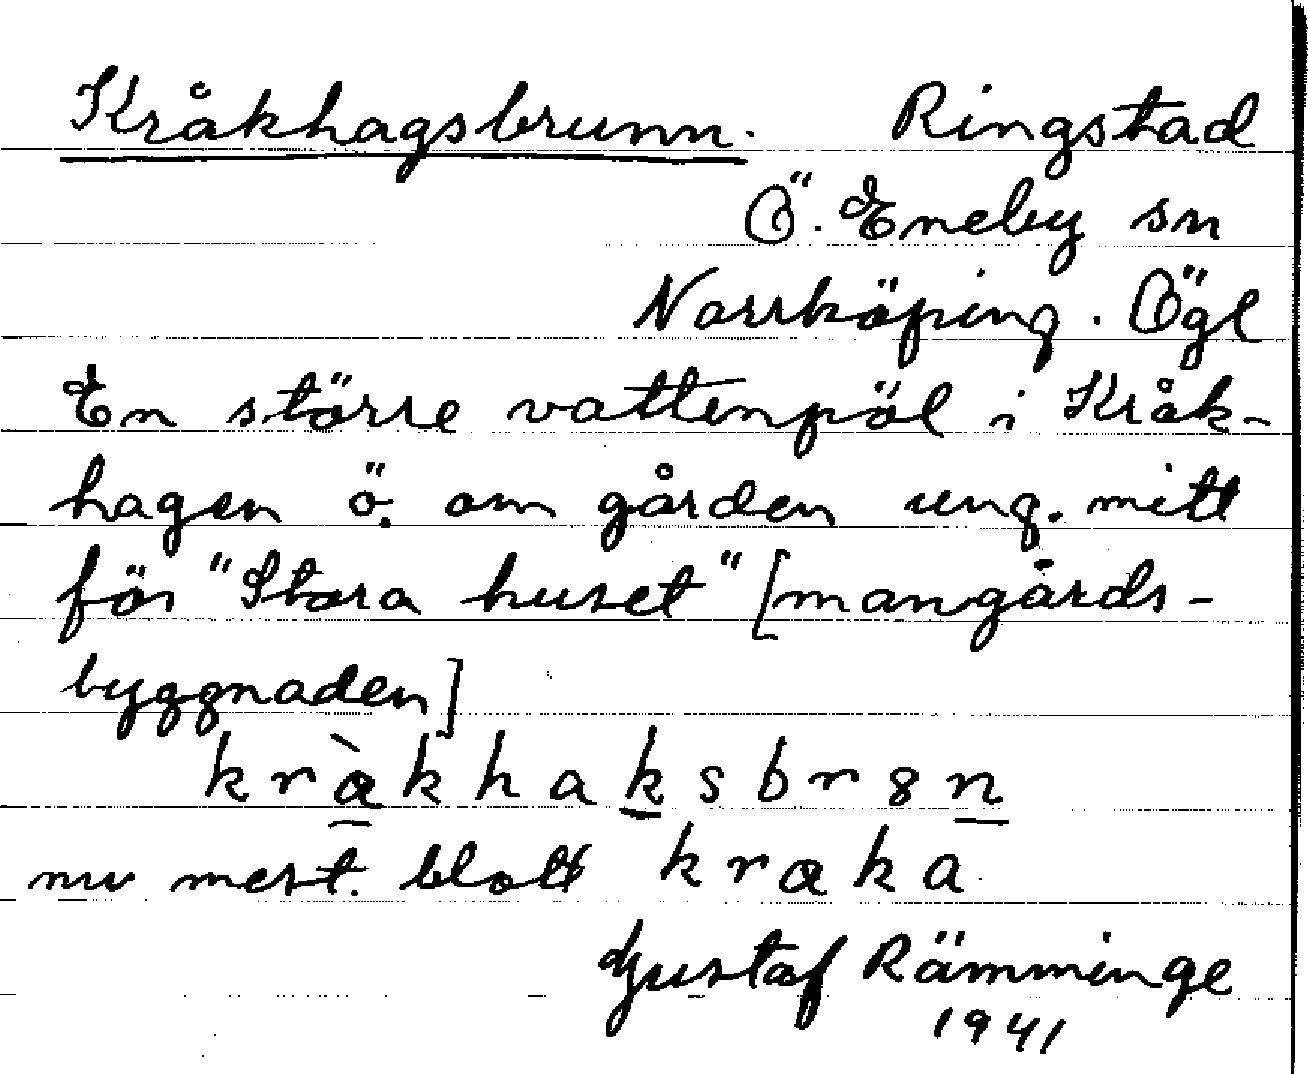 Kråkhagsbrunn. Ringstad
Ö. Eneby sn
Norrköping. Ögl
En större vattenpöl i Kråk-
hagen ö. om gården ung. mitt
för "Stora huset" [mangårds-
byggnaden]
kràkhaksbr8n
nu mest. blott kraka
Gustaf Rämminge
1941